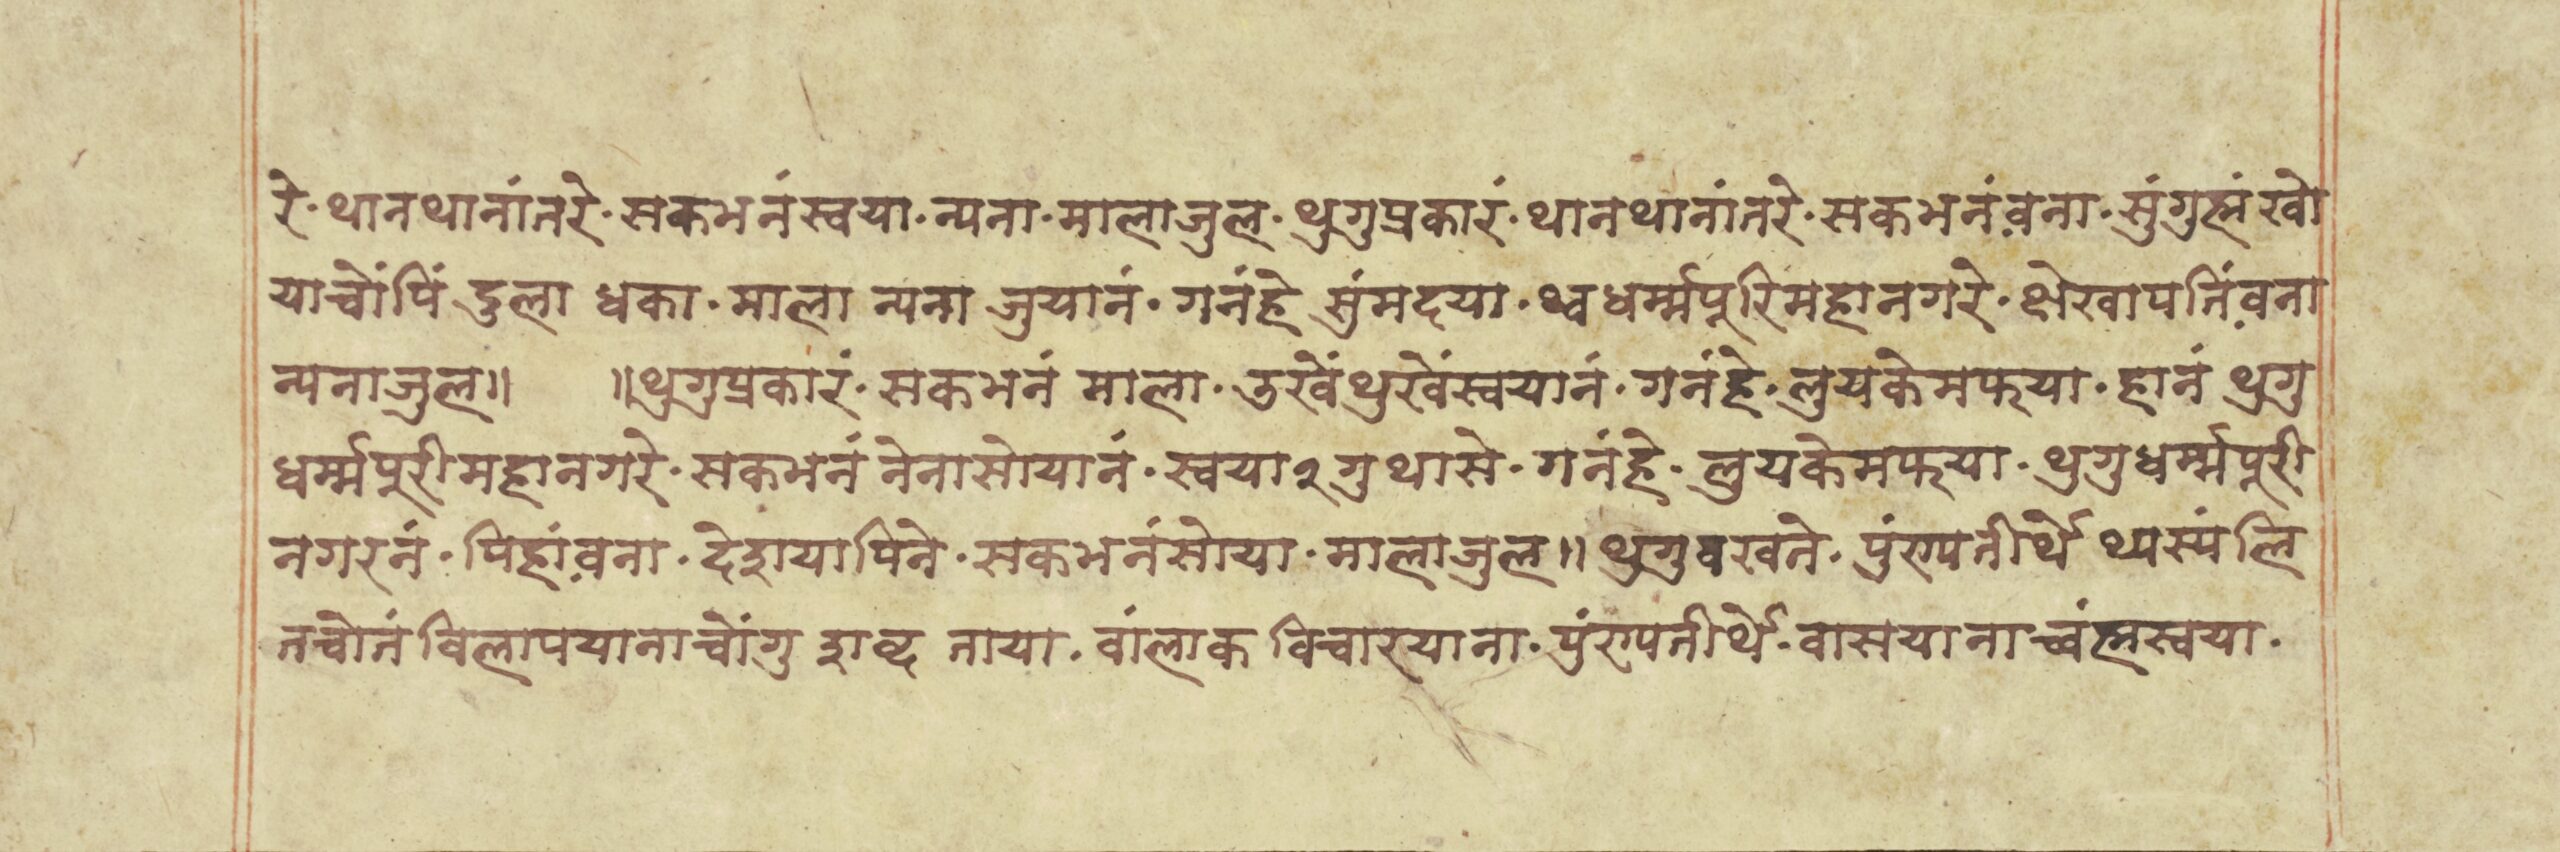 रे·थानथानांतरे·सकभनंस्वया·न्यना·मालाजुल·थुगुप्रकारं·थानथानांतरे·सकभनंव़ना·सुंगुह्मंखो
याचोंपिं दुला धका·माला न्यना जुयानं·गनंहे सुंमदया·थ्वधर्म्मपूरिमहानगरे·क्षेखापतिंव़ना
न्यनाजुल॥ ॥थुगुप्रकारं·सकभनं माला·उखेंथुखेंस्वयानं·गनंहे·लुयकेमफया·हानं थुगु
धर्म्मपूरीमहानगरे·सकभनं नेनासोयानं·स्वया२गुथासे·गनंहे·लुयकेमफया·थुगुधर्म्मपूरी
नगरनं·पिहांव़ना·देशयापिने·सकभनंसोया·मालाजुल॥थुगुवखते·पुंरुपतीर्थे थ्यस्यंलि
तचोतं विलापयानाचोंगु शब्द ताया·वांलाक विचारयाना·पुंरुपतीर्थे·वासयानाच्वंह्मस्वया·